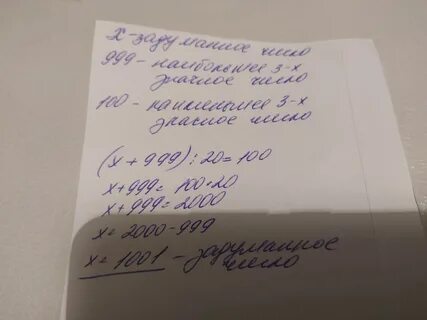 x - задуманное число
999 - наибольшее 3-х
значное число
100 - наименьшее 3-х
значное число
(x + 999) : 20 = 100
x + 999 = 100 · 20
x + 999 = 2000
x = 2000 - 999
x = 1001 - задуманное
число